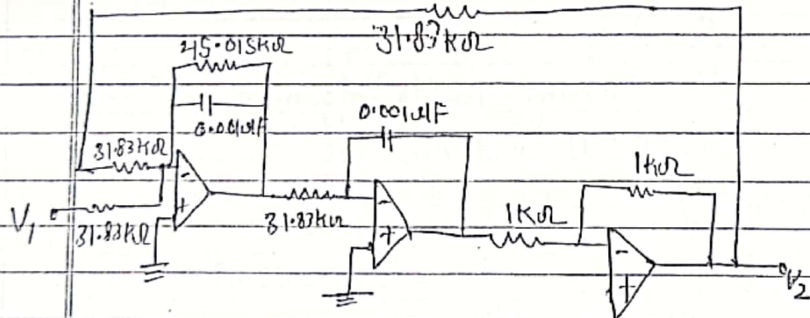 31.83kΩ
45.015kΩ
0.001μF
0.001μF
31.83kΩ
1kΩ
V1
31.83kΩ
31.83kΩ
1kΩ
-
+
-
+
-
+
V2